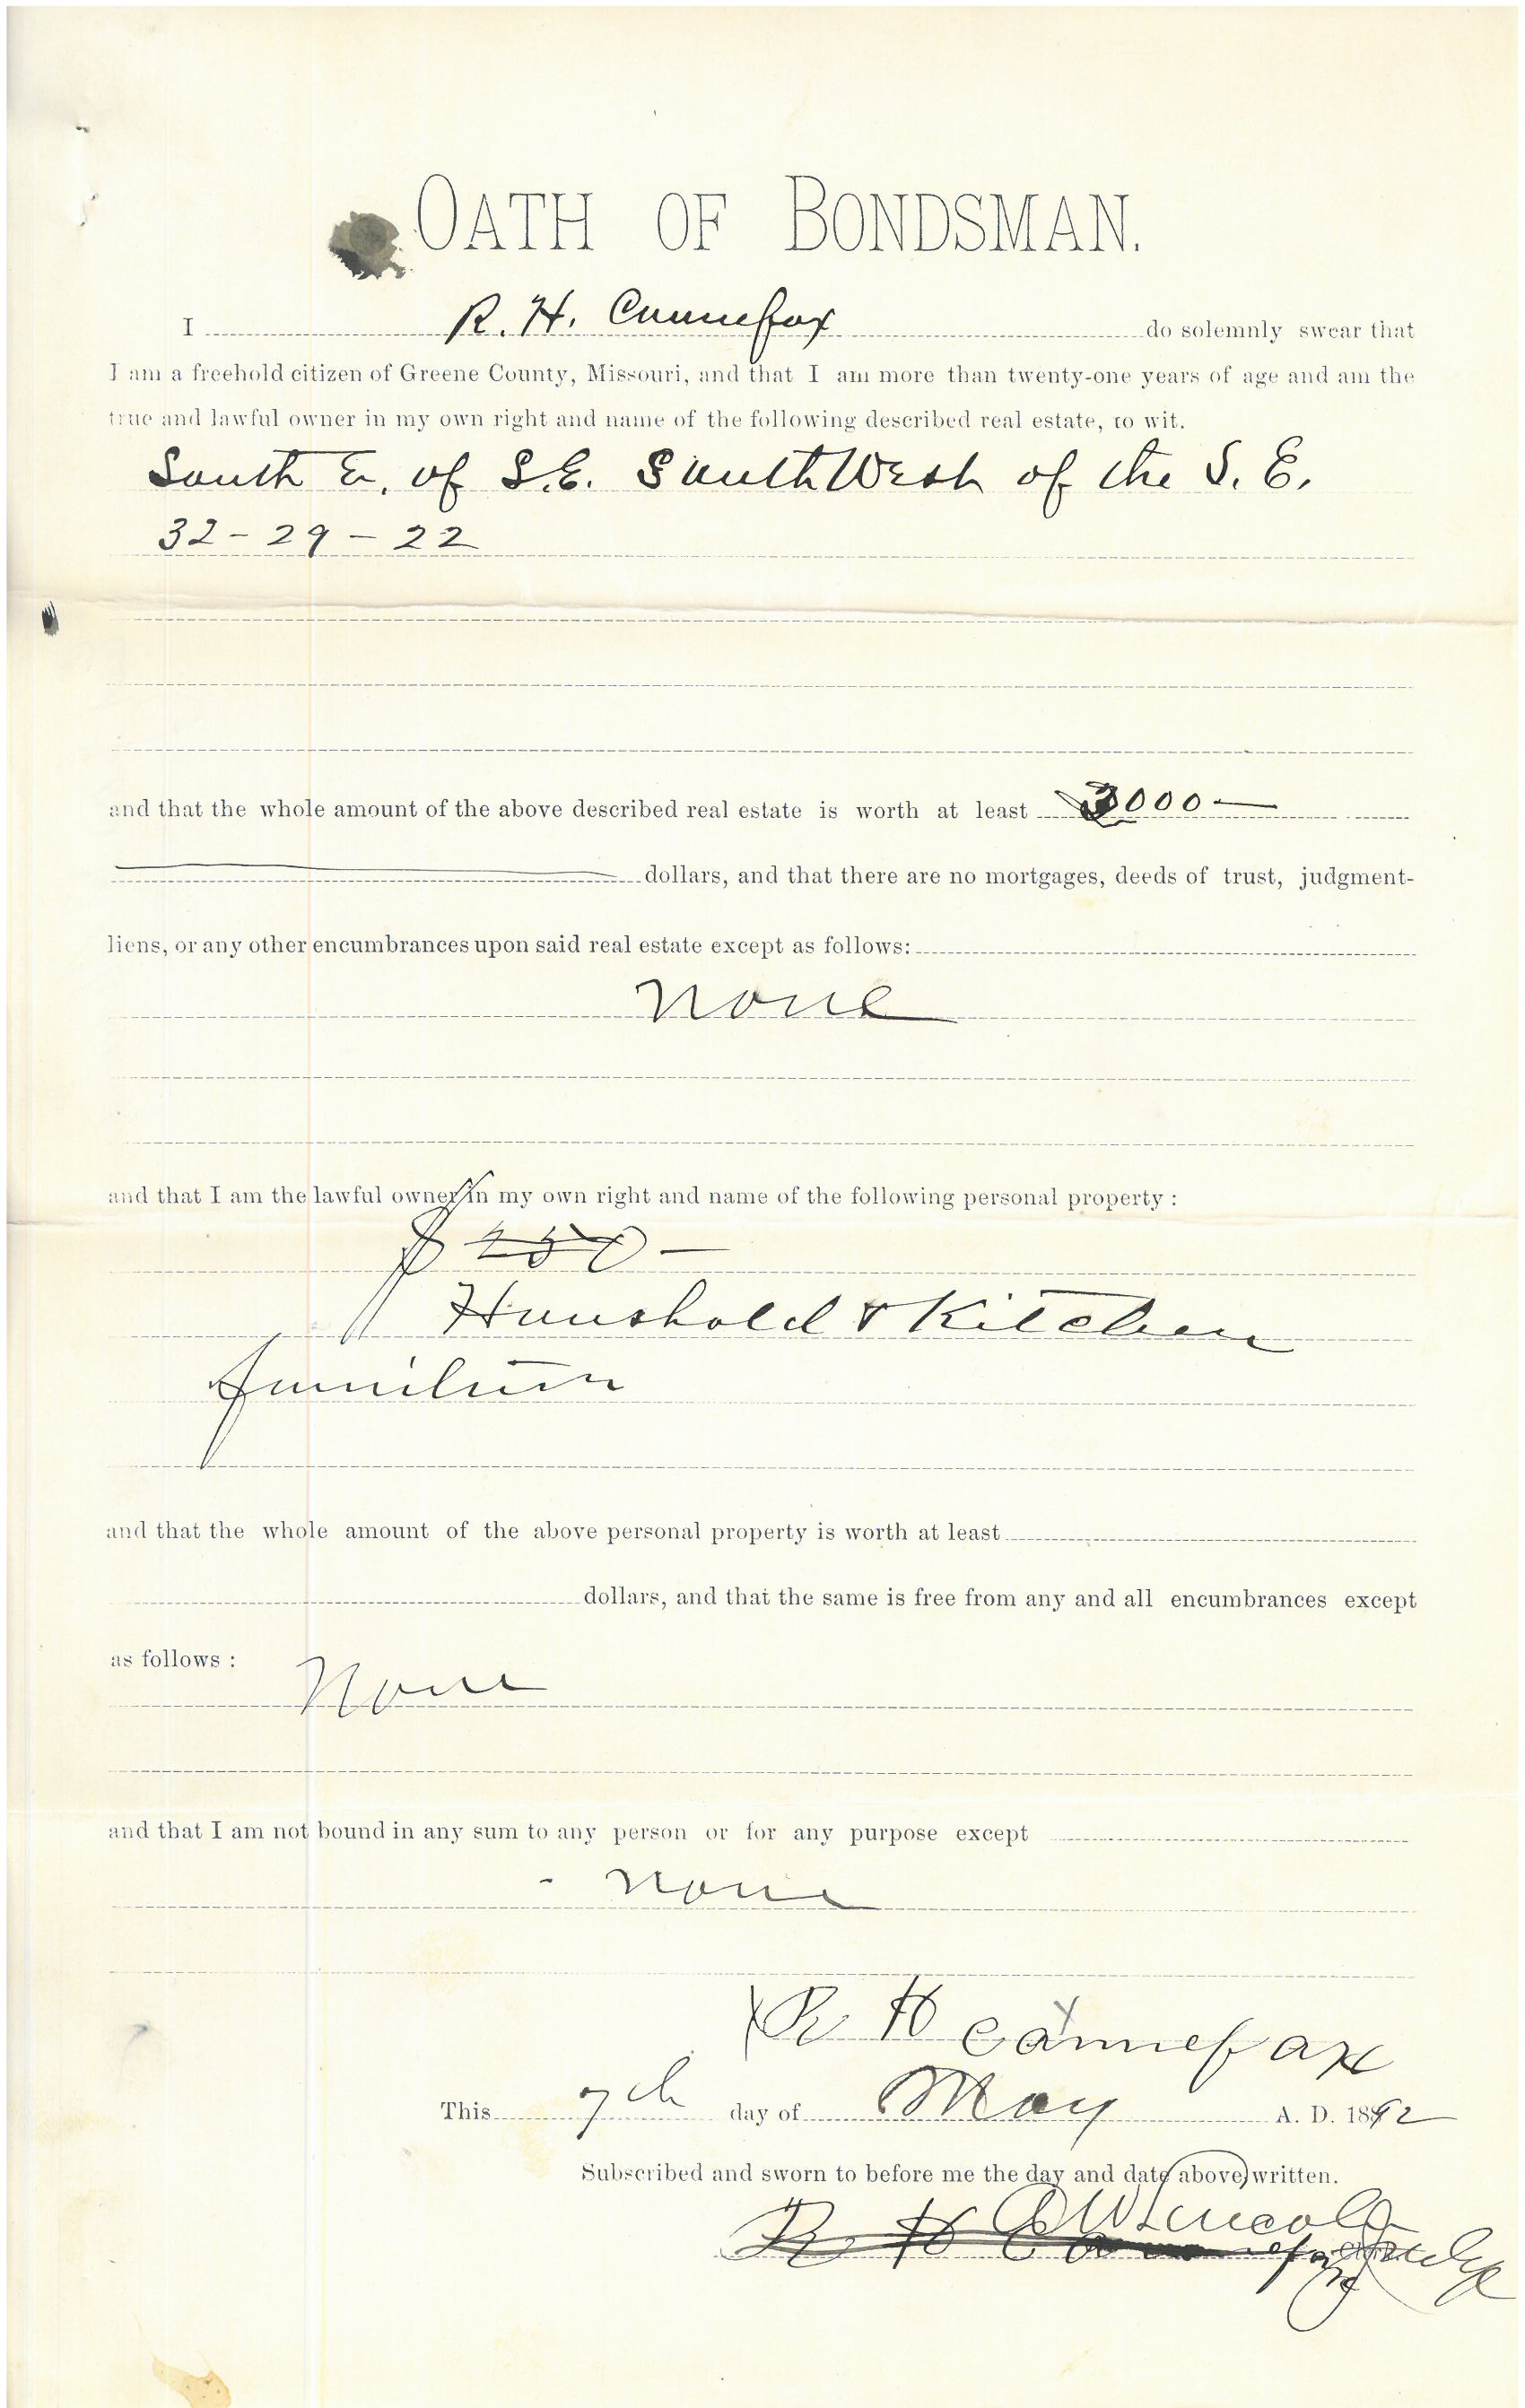 OATH OF BONDSMAN.
I R. H. Cannefax do solemnly swear that
I am a freehold citizen of Greene County, Missouri, and that I am more than twenty-one years of age and am the
true and lawful owner in my own right and name of the following described real estate, to wit.
South E. of S.E. South West of the S. E.
32 - 29 - 22
and that the whole amount of the above described real estate is worth at least 3000 —
dollars, and that there are no mortgages, deeds of trust, judgment-
liens, or any other encumbrances upon said real estate except as follows:
none
and that I am the lawful owner in my own right and name of the following personal property :
$ 250 —
Houshold & Kitchen
furniture
and that the whole amount of the above personal property is worth at least
dollars, and that the same is free from any and all encumbrances except
as follows : None
and that I am not bound in any sum to any person or for any purpose except
- none
R H Cannefax
This 7th day of May A. D. 1892
Subscribed and sworn to before me the day and date above written.
Lincoln
R H Cannefax Judge